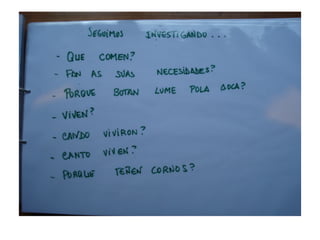 SEGUIMOS INVESTIGANDO...
- QUE COMEN?
- FAN AS SUAS NECESIDADES?
- PORQUE BOTAN LUME POLA BOCA?
- VIVEN?
- CANDO VIVIRON?
- CANTO VIVEN?
- PORQUE TEÑEN CORNOS?